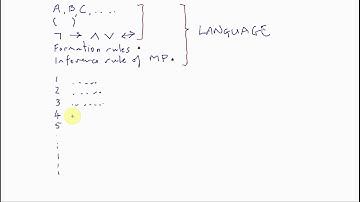 A, B, C, ....
( )
¬ → ∧ ∨ ↔
Formation rules .
Inference rule of MP .
LANGUAGE
1 .....
2 .....
3 .....
4
5